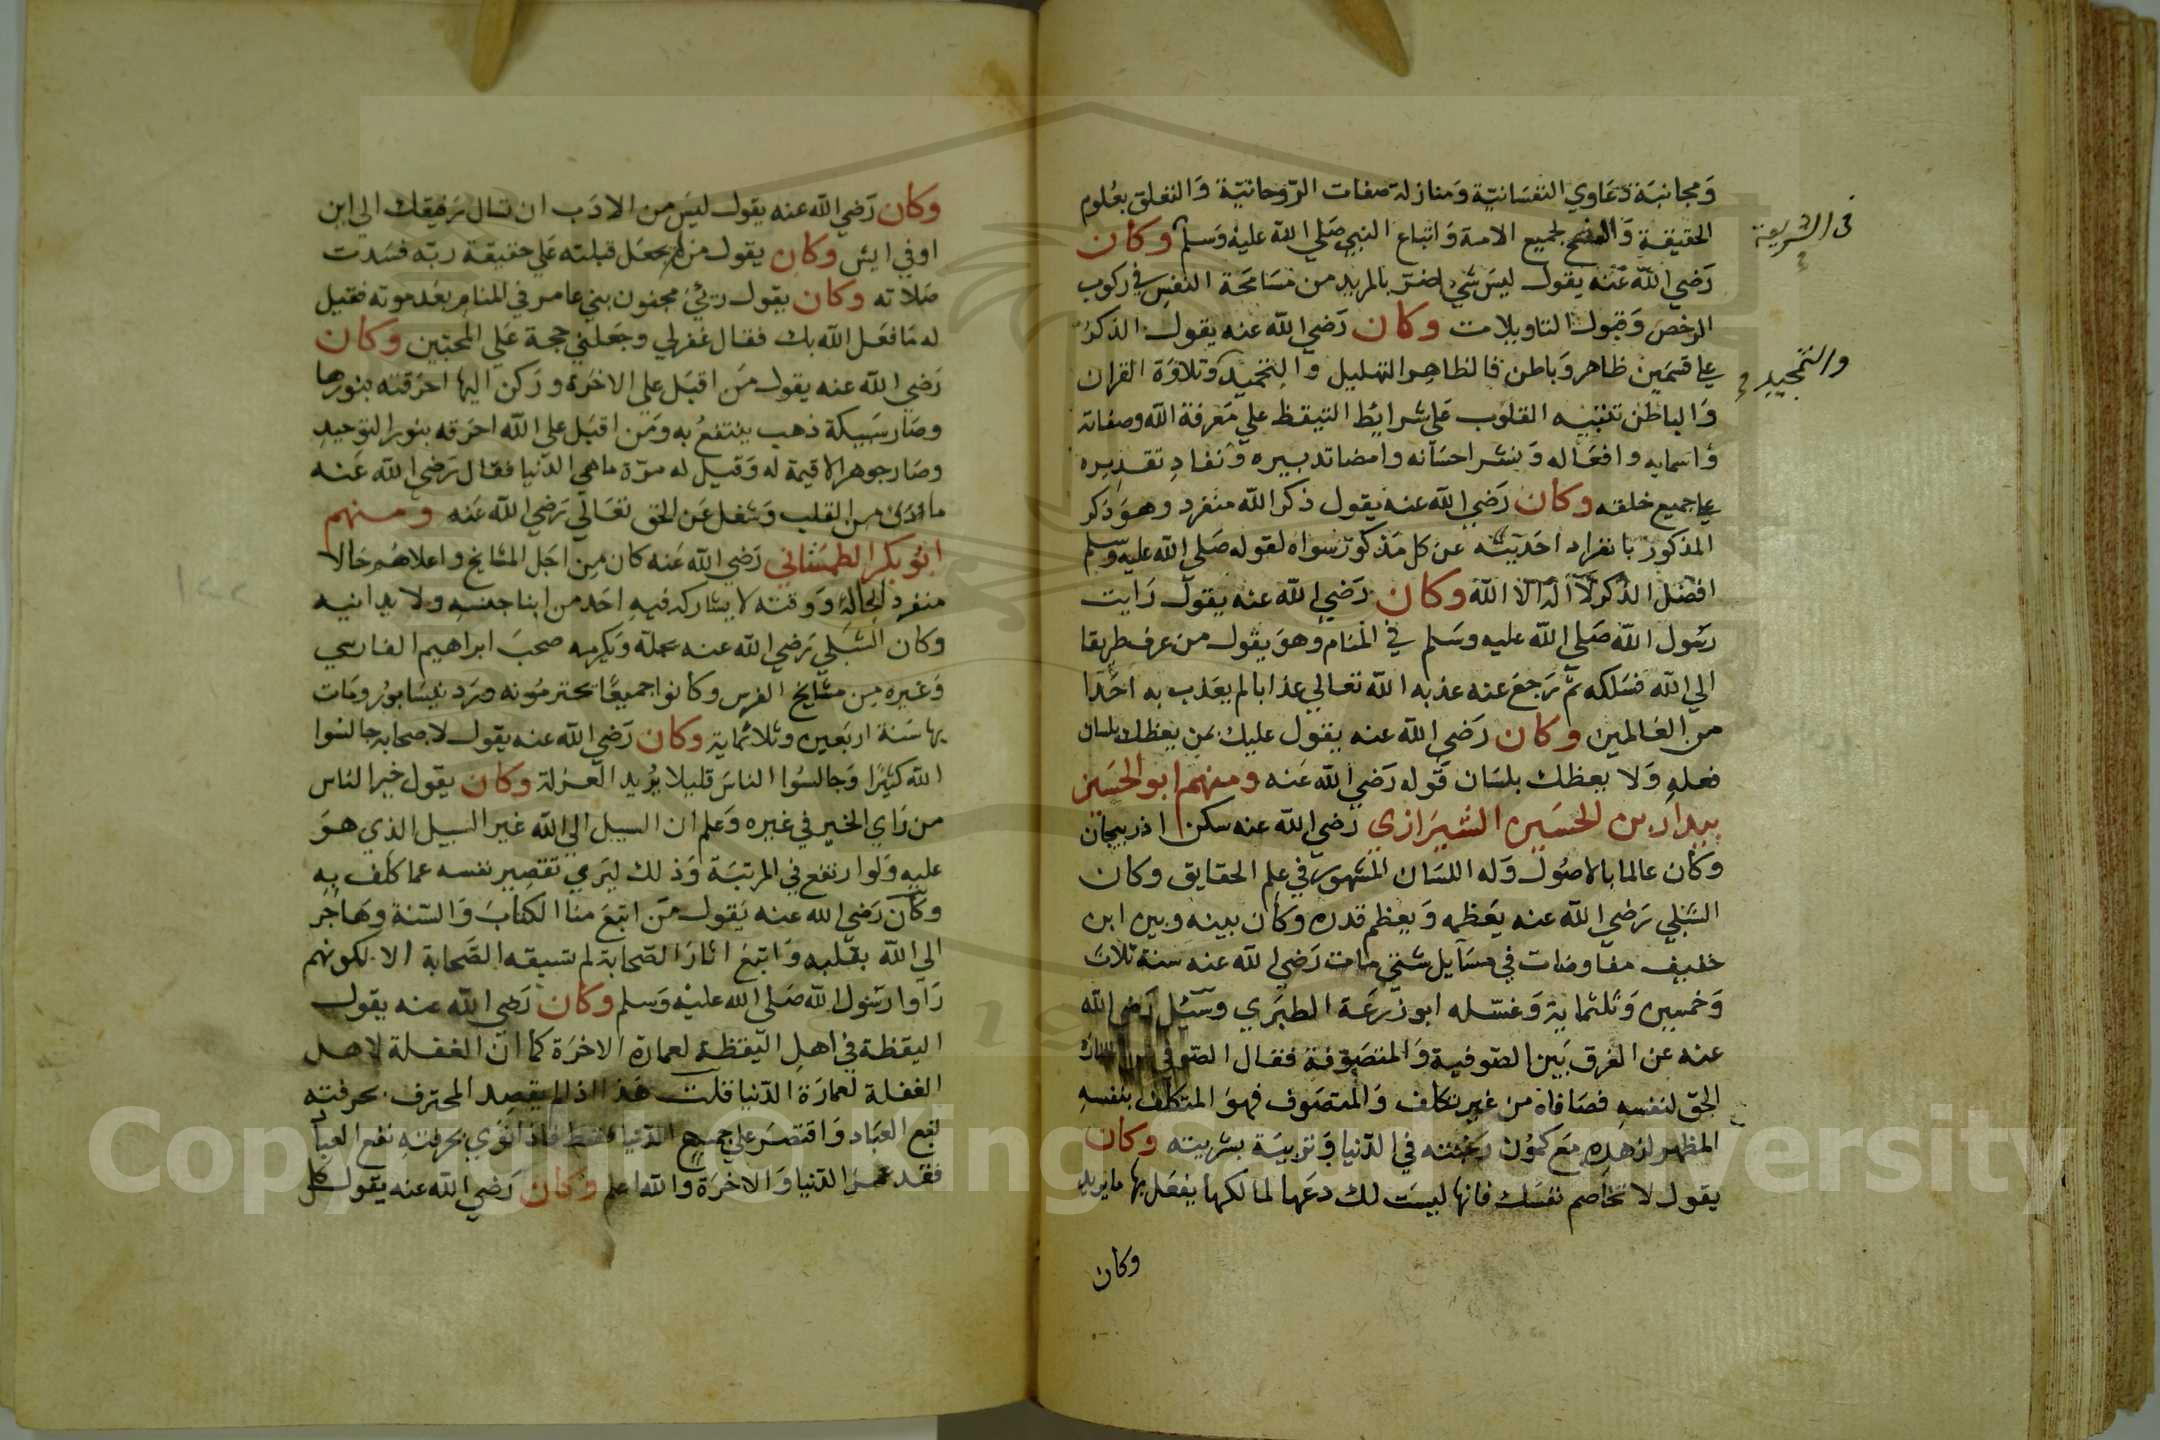 وَمجانبَة دَعَاوي النفسَانيّة وَمنازلة صفات الرّوحانيّة وَالتعلق بعُلوم
الحقيقية وَالنصح لجميع الامة وَاتباع النبي صَلي الله عليهْ وَسلم وكان
في الشريعة
رَضي الله عَنْه يقول ليسَ شي اضرّ بالمريد من مسَامحَة النفسِ في ركوب
الرخص وَقبول التاويلات وكان رَضي الله عنه يقول الذكرُ
علي قسمَين ظاهر وَباطن فالظاهِر التهليل والتحميد وتلاوَة القران
والتمجيد
وَالباطن تنبيه القلوب عَلي شرايط التيقظ علي مَعرفة الله وصفاته
وَاسمايه وافعَاله وَبنشر احسَانه وامضا تدبيره وَنفاد تقديره
علي جميع خلقه وكان رَضي الله عنه يقول ذكر الله منفرد وهوَ ذكر
المذكور بانفراد احَديته عن كل مَذكورٍ سواه لقوله صَلي الله عليه وسلم
افضل الذكر لآ اله الا الله وكان رَضي الله عنه يقول رَايت
رَسُول الله صَلي الله عليه وسَلم في المنام وهوَ يقول من عرف طريقا
الي الله فسَلكه ثم رَجعَ عنه عذبه الله تعالي عذابا لم يعَذب به احَدًا
من العَالمين وكان رَضي الله عنه يقول عليك بمن يعظك بلسان
فعله وَلا يعظك بلسَان قوله رَضي الله عَنه ومنهم ابو الحسَين
بندار بن الحسَين الشيرَازي رَضي الله عنه سكن اذربيجان
وكان عالما بالاصُول وَله اللسَان المشهور في علم الحقايق وكان
الشبلي رَضي الله عنه يعَظمه وَيعظم قدره وكان بينه وبين ابن
خفيف مفاوضات في مسَآيل شتي مات رَضي الله عنه سنة ثلاث
وَخمسين وَثلثماية وَغسّله ابو ذرعَة الطبَري وسيُل رَضي الله
عنه عن الفرق بَين الصوفية وَالمتصَوفة فقال الصوفي من اختاره
الحق لنفسهِ فصَافاه من غير تكلف وَالمتصَوف فهوَ المتكلف بنفسهِ
المظهر لزهده مَع كمُون رَغبته في الدّنيا وَتربيَة بشريته وكان
يقول لا تخاصم نفسَك فانها ليسَت لك دعَها لمالكها يفعَل بها مايريد
وكان
وكان رَضي الله عنه يقول ليسَ من الادَب ان تسال رَفيقك الي اين
اوفي ايش وكان يقول من لم يجعَل قبلته عَلي حقيقة ربّه فسَدت
صَلاته وكان يقول رئي مجنون بني عامر في المنام بعَد موته فقيل
له مَا فعَل الله بك فقال غفرلي وجعَلني حجة عَلي المحبّين وكان
رَضي الله عنه يقول مَن اقبَل علي الاخرَة ورَكن اليها احرَقته بنورها
وصَار سَبيكة ذهب ينتفعُ به ومَن اقبَل علي الله احرَقه بنور التوحيد
وصَار جوهرا لا قيمة له وَقيل له مرّة ماهي الدّنيا فقال رَضي الله عَنه
مادَنَ من القلب وَشغل عَن الحق تعَالَي رَضي الله عَنه ومنهم
ابوُ بكر الطمستاني رَضي الله عَنه كان مِن اجَل المشايخ واعلاهُم حَالا
منفرد الحاله وَوقته لا يشاركه فيهِ احَد من ابنا جنسهِ ولا يدانيه
وكان الشبلي رَضي الله عنه يجمله وَيكرمه صحبَ ابراهيم الفارسي
وَغيره مِن مشايخ الفرس وكانوا جميعًا يحترمُونه وَرَد نيسَابورُ ومَات
بها سَنة اربَعين وثلاثماية وكان رَضي الله عنه يقول لاصحابهِ جالسُوا
الله كثيرًا وَجالسُوا الناسَ قليلا يرُيد العزلة وكان يقول خير الناس
من رَاي الخير في غيره وَعلم ان السبيل الي الله غير السبيل الذي هوَ
عليهِ وَلو ارتفع في المرتبَة وَذلك ليَرَي تقصِير نفسه عما كلف بهِ
وكان رَضي الله عنه يَقول مَن اتبعَ منا الكتابَ وَالسّنة وهَاجَر
الي الله بقلبه وَاتبعَ اثارَ الصّحابة لم تسبقه الصَّحابة الا بكونهم
رَاوا رَسُول الله صَلي الله عليْه وَسلم وكان رَضي الله عنه يقول
اليقظة في اهلِ اليَقظة لعمارة الاخرَة كما انّ الغفلة لاهل
الغفلة لعمارَة الدّنيا قلت هَذا اذا لم يقصِد المحترف بحرفته
نفع العبَاد وَاقتصَرَ علي جميع الدّنيا فقط فاذا نوَي بحرفتهِ نفع العباد
فقد عمرَ الدّنيا وَالاخرَة وَالله اعلم وكان رَضي الله عنه يقول كل
Copyright © King Saud University